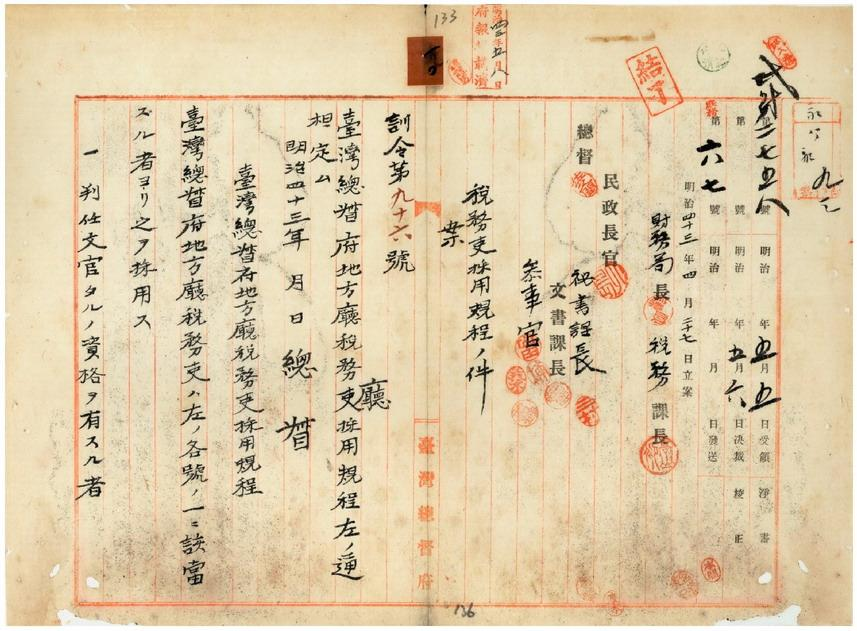 133
明治四三年五月八日
府報ニ載濟
結了
永公永 九ノ二
貳財二七五八
第 號 明治 年五月五日受領 淨書
第 號 明治 年五月六日決裁 校正
第六七號 明治 年 月 日發送
明治四十三年四月二十七日立案
財務局長 稅務課長
民政長官 秘書課長
文書課長
總督 參事官
稅務吏採用規程ノ件
案
訓令第九十六號
廳
臺灣總督府地方廳稅務吏採用規程左ノ通
相定ム
明治四十三年 月 日 總督
臺灣總督府地方廳稅務吏採用規程
臺灣總督府地方廳稅務吏ハ左ノ各號ノ一ニ該當
スル者ヨリ之ヲ採用ス
一 判任文官タルノ資格ヲ有スル者
臺灣總督府
136